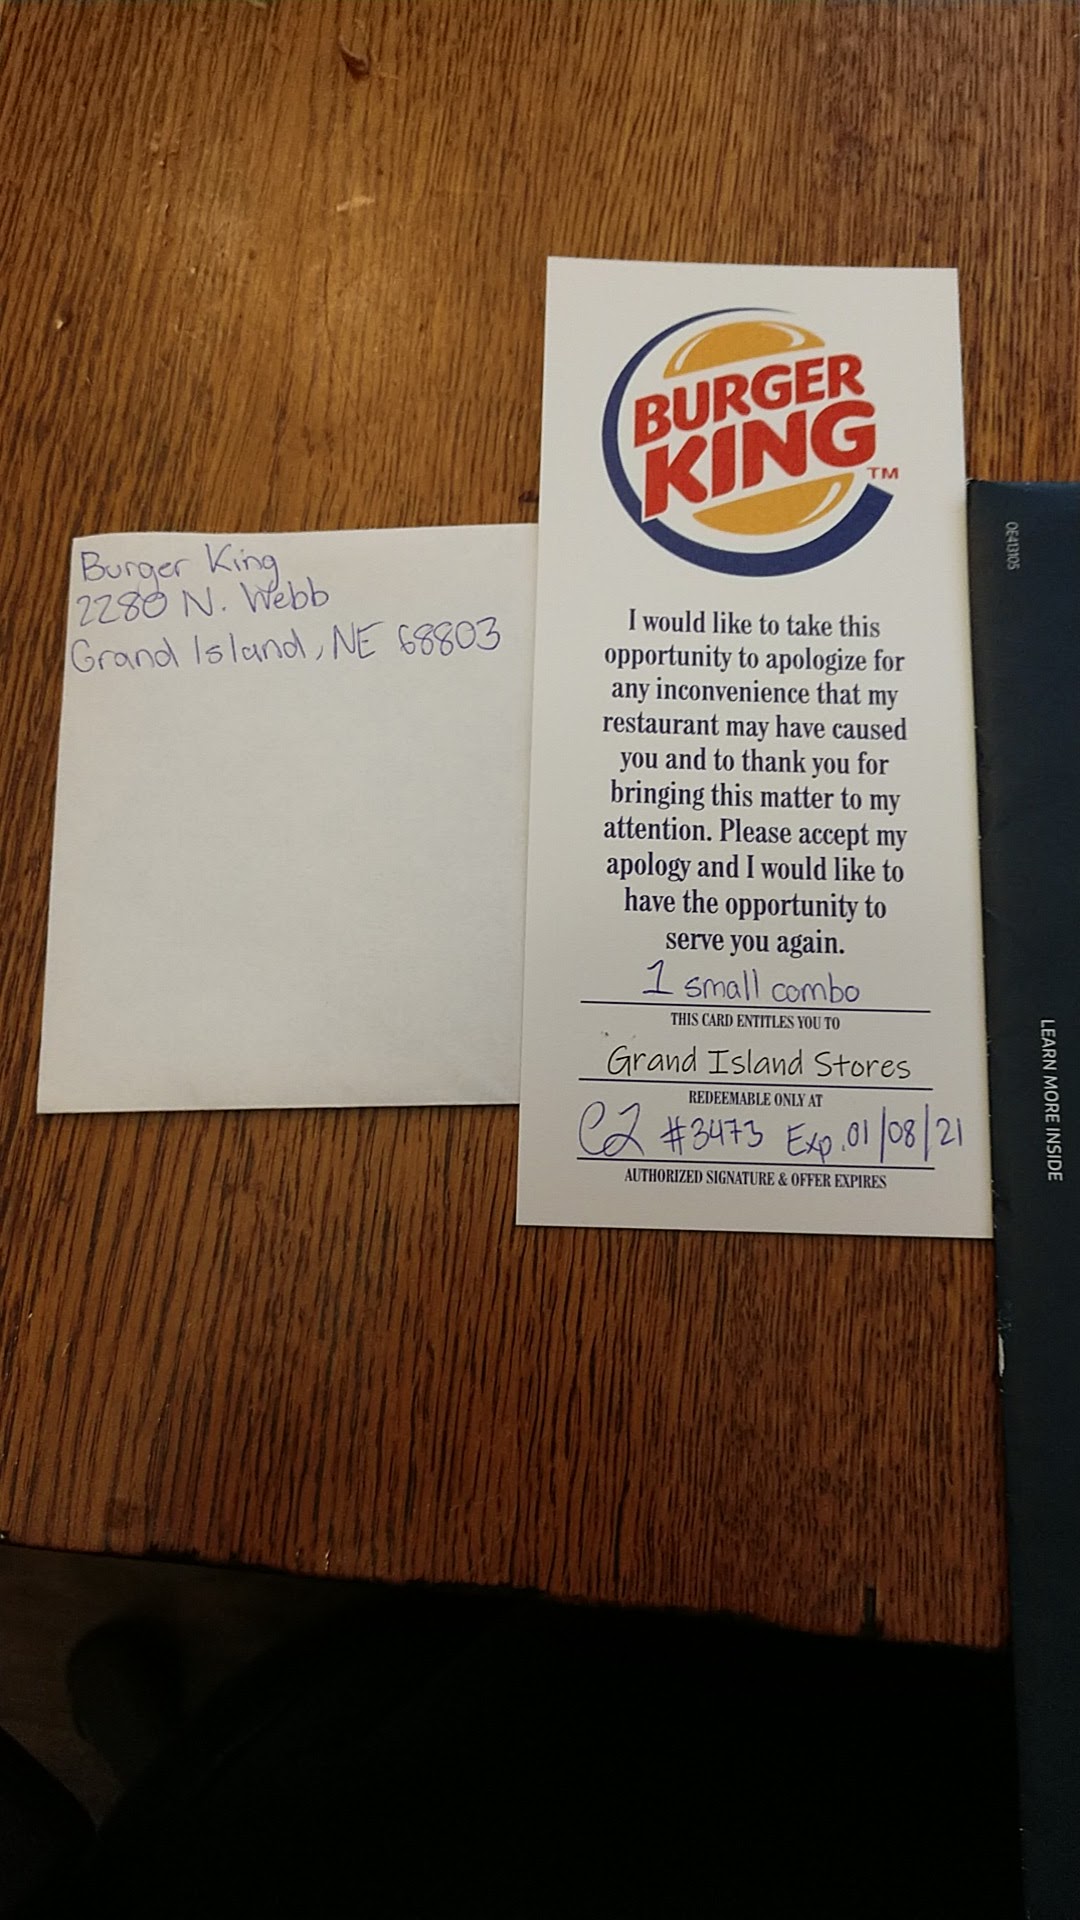 Burger King
2280 N. Webb
Grand Island, NE 68803
BURGER
KING
TM
I would like to take this
opportunity to apologize for
any inconvenience that my
restaurant may have caused
you and to thank you for
bringing this matter to my
attention. Please accept my
apology and I would like to
have the opportunity to
serve you again.
1 small combo
THIS CARD ENTITLES YOU TO
Grand Island Stores
REDEEMABLE ONLY AT
#3473 Exp. 01/08/21
AUTHORIZED SIGNATURE & OFFER EXPIRES
OE413105
LEARN MORE INSIDE